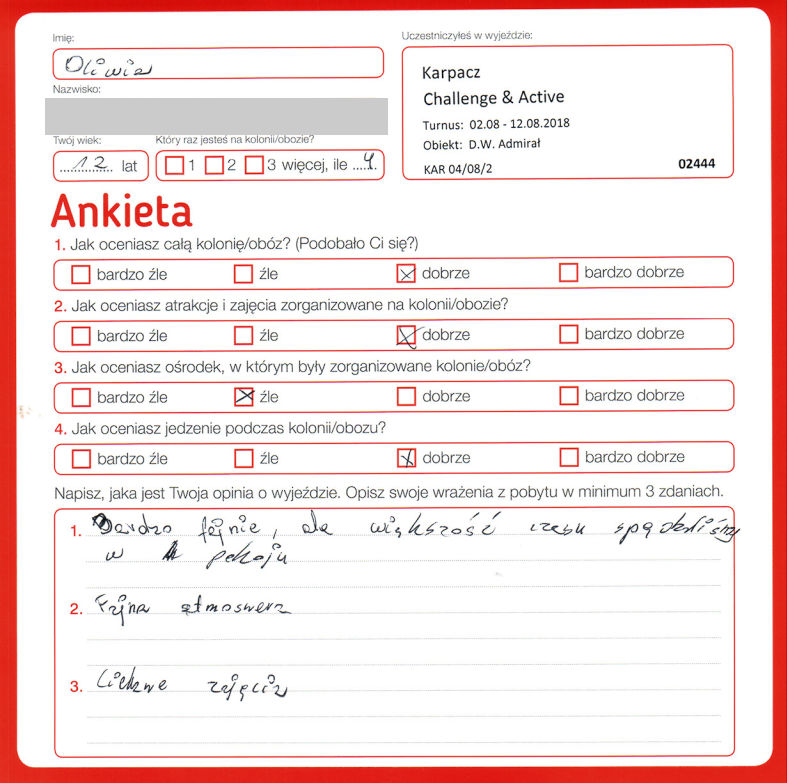 Imię:
Oliwia
Nazwisko:
Twój wiek:
12 lat
Który raz jesteś na kolonii/obozie?
1 2 3 więcej, ile 4.
Uczestniczyłeś w wyjeździe:
Karpacz
Challenge & Active
Turnus: 02.08 - 12.08.2018
Obiekt: D.W. Admirał
KAR 04/08/2 02444
Ankieta
1. Jak oceniasz całą kolonię/obóz? (Podobało Ci się?)
bardzo źle źle dobrze bardzo dobrze
2. Jak oceniasz atrakcje i zajęcia zorganizowane na kolonii/obozie?
bardzo źle źle dobrze bardzo dobrze
3. Jak oceniasz ośrodek, w którym były zorganizowane kolonie/obóz?
bardzo źle źle dobrze bardzo dobrze
4. Jak oceniasz jedzenie podczas kolonii/obozu?
bardzo źle źle dobrze bardzo dobrze
Napisz, jaka jest Twoja opinia o wyjeździe. Opisz swoje wrażenia z pobytu w minimum 3 zdaniach.
1. Bardzo fajnie, ale większość czasu spędziliśmy
w pokoju
2. Fajna atmoswera
3. Ciekawe zajęcia